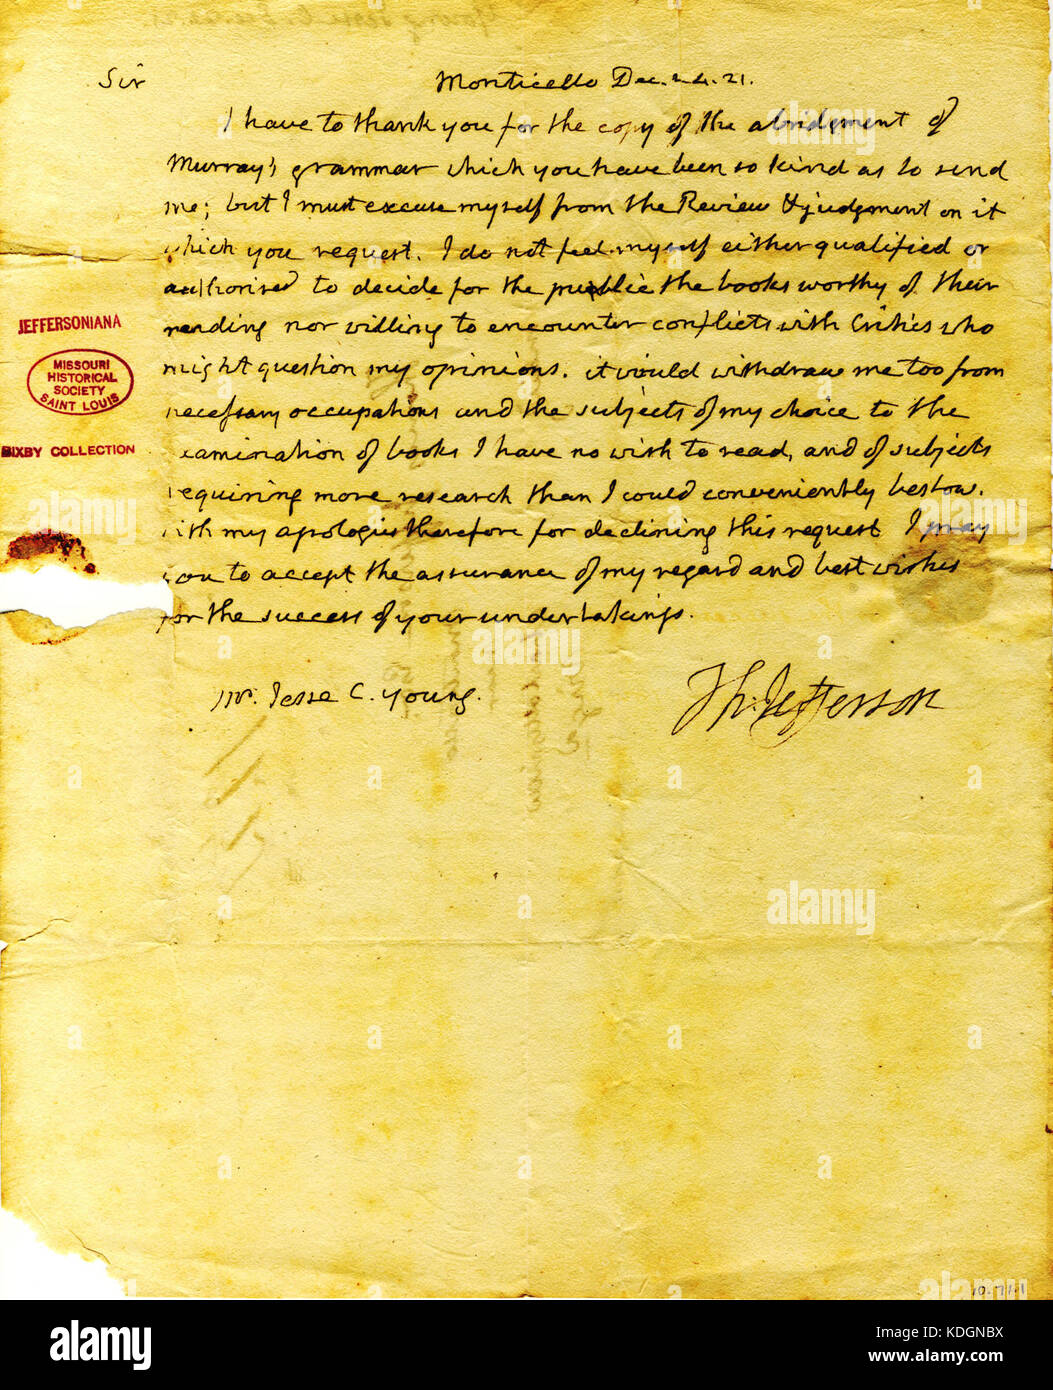 Sir Monticello Dec. 24. 21.
I have to thank you for the copy of the abridgment of
Murray's grammar which you have been so kind as to send
me; but I must excuse myself from the Review & judgment on it
which you request. I do not feel myself either qualified or
authorised to decide for the public the books worthy of their
reading nor willing to encounter conflicts with Critics who
might question my opinions. it would withdraw me too from
necessary occupations and the subjects of my choice to the
examination of books I have no wish to read, and of subjects
requiring more research than I could conveniently bestow.
with my apologies therefore for declining this request I pray
you to accept the assurance of my regard and best wishes
for the success of your undertakings.
Th: Jefferson
Mr. Jesse C. Young.
JEFFERSONIANA
MISSOURI
HISTORICAL
SOCIETY
SAINT LOUIS
BIXBY COLLECTION
alamy
alamy
alamy
alamy
alamy
alamy
alamy
alamy
10.71.1
alamy
Image ID: KDGNBX
www.alamy.com